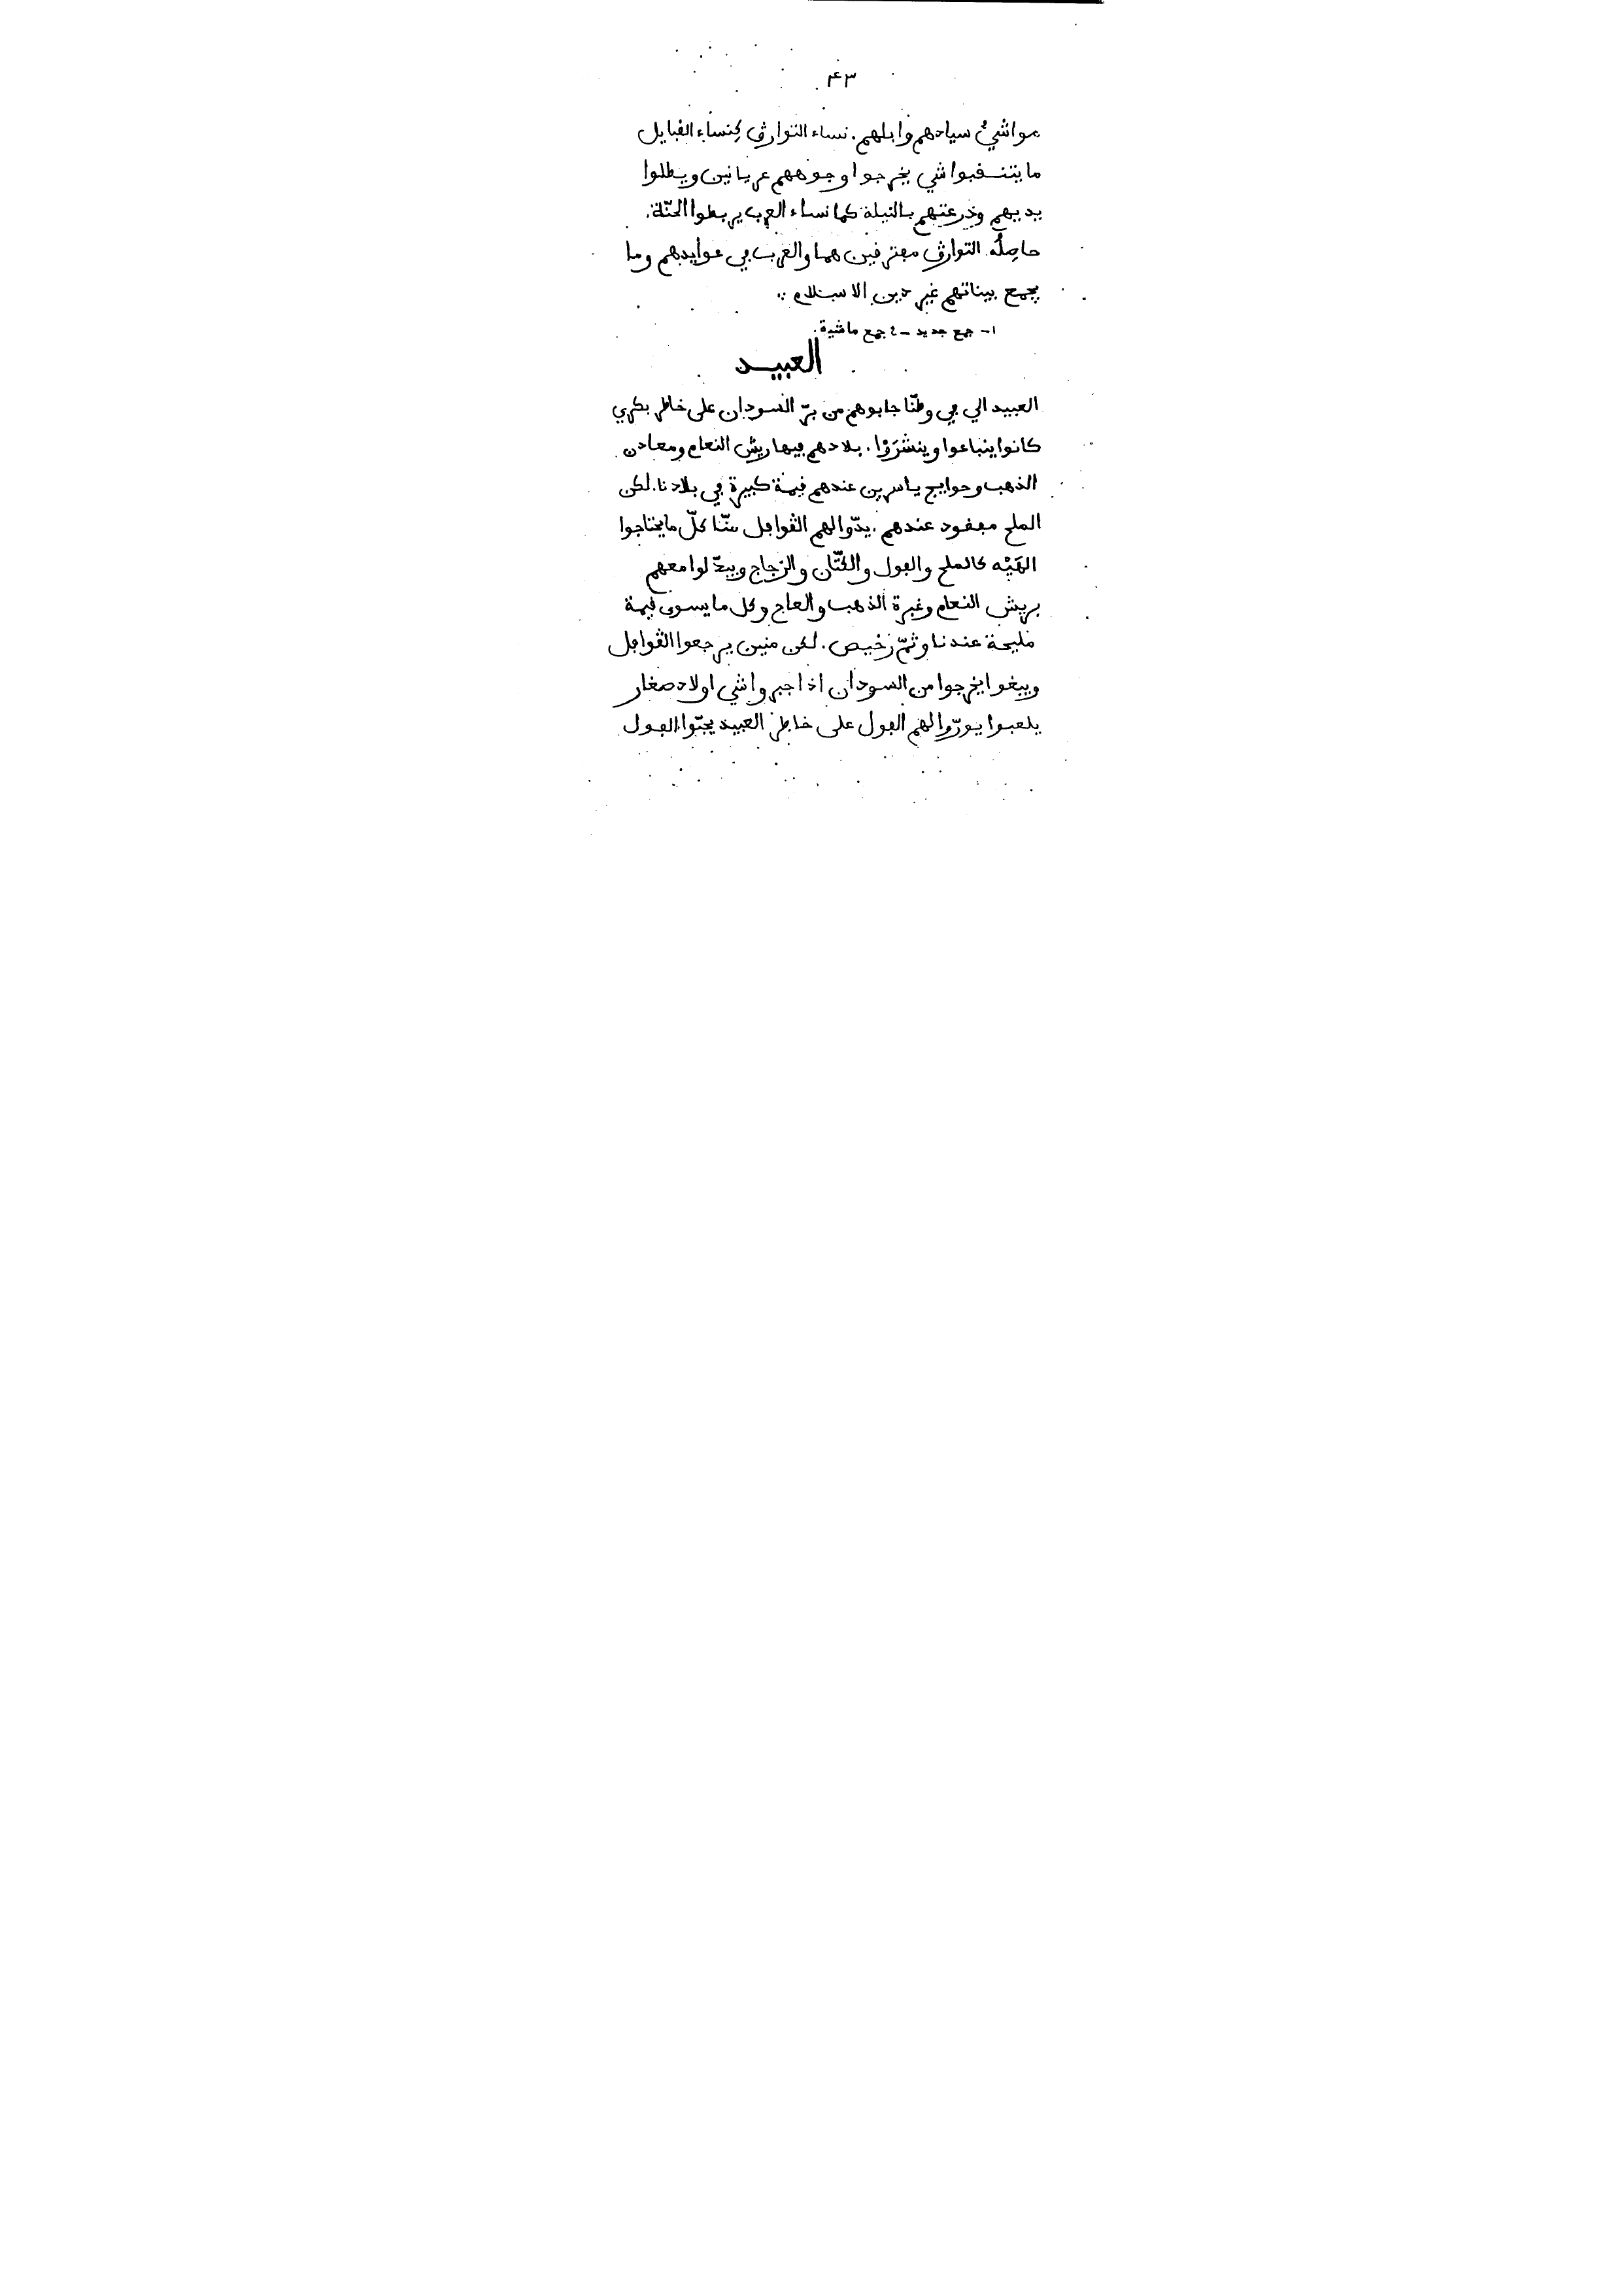 ٤٣
مواشي٤ سيادهم وابلهم. نساء التوارڤ كِنساء القبايل
ما يتنقبوا شي يخرجوا وجوههم عريانين ويطلوا
يديهم وذرعتهم بالنيلة كما نساء العرب يربطوا الحنّة.
حاصِلُه التوارڤ مفترقين هما والعرب في عوايدهم وما
يجمع بيناتهم غير دين الاسلام ؞
١ - جمع جديد - ٤ جمع ماشية.
العبيد
العبيد الي في وطنّا جابوهم من برّ السودان على خاطر بكري
كانوا ينباعوا وينشرَوْا. بلادهم فيها ريش النعام ومعادن
الذهب وحوايج ياسرين عندهم قيمة كبيرة في بلادنا. لكن
الملح مفقود عندهم. يدّوا لهم الڤوافل متّا كلّ ما يحتاجوا
الهَيْه كالملح والفول والكتّان والزجاج ويبدّلوا معهم
بريش النعام وغبرة الذهب والعاج وكل ما يسوى قيمة
مليحة عندنا وثمّ رخيص. لكن منين يرجعوا الڤوافل
ويبغوا يخرجوا من السودان اذا جبروا شي اولاد صغار
يلعبوا يورّوا لهم الفول على خاطر العبيد يحبّوا الفول